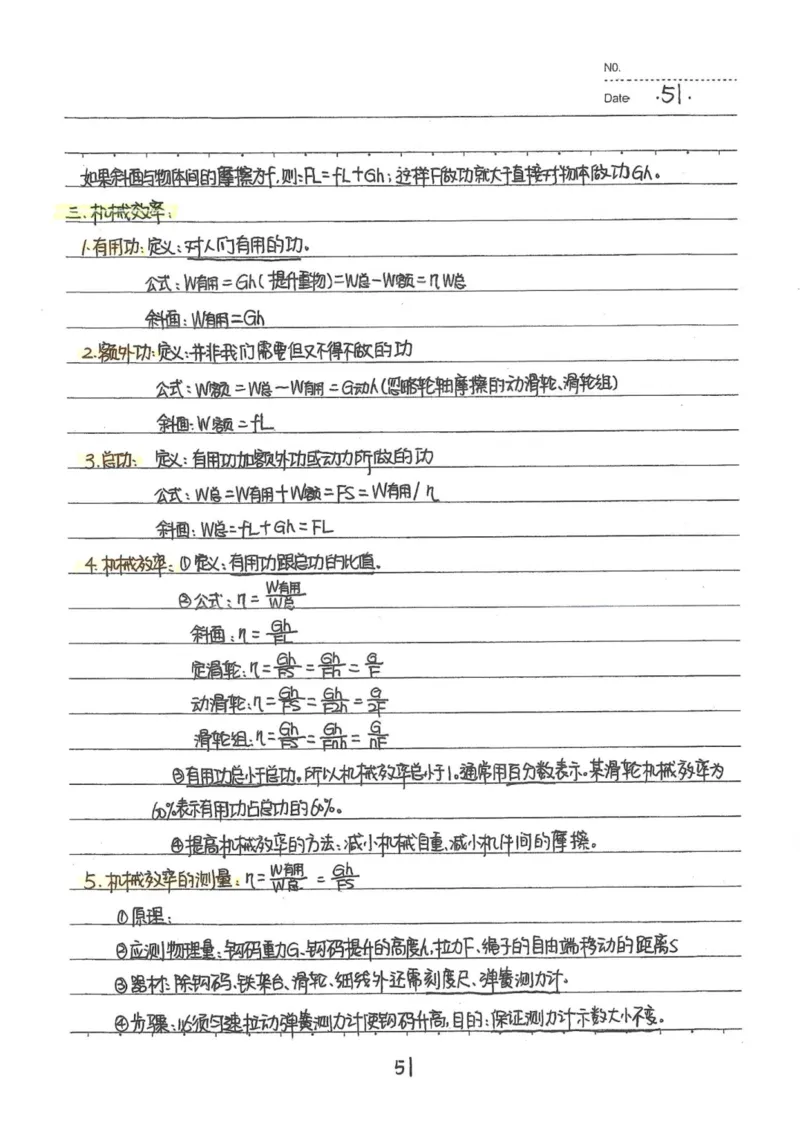 NO.
Date ·51·
如果斜面与物体间的摩擦为f,则:FL=fL+Gh;这样F做功就大于直接对物体做功Gh。
三.机械效率:
1.有用功:定义:对人们有用的功。
公式:W有用=Gh(提升重物)=W总-W额=ηW总
斜面:W有用=Gh
2.额外功:定义:并非我们需要但又不得不做的功
公式:W额=W总-W有用=G动h(忽略轮轴摩擦的动滑轮、滑轮组)
斜面:W额=fL
3.总功: 定义:有用功加额外功或动力所做的功
公式:W总=W有用+W额=FS=W有用/η
斜面:W总=fL+Gh=FL
4.机械效率:①定义:有用功跟总功的比值。
②公式:η=W有用/W总
斜面:η=Gh/FL
定滑轮:η=Gh/FS=Gh/Fh=G/F
动滑轮:η=Gh/FS=Gh/F2h=G/2F
滑轮组:η=Gh/FS=Gh/Fnh=G/nF
③有用功总小于总功。所以机械效率总小于1。通常用百分数表示。某滑轮机械效率为
60%表示有用功占总功的60%。
④提高机械效率的方法:减小机械自重、减小机件间的摩擦。
5.机械效率的测量:η=W有用/W总=Gh/FS
①原理:
②应测物理量:钩码重力G、钩码提升的高度h,拉力F、绳子的自由端移动的距离S
③器材:除钩码、铁架台、滑轮、细线外还需刻度尺、弹簧测力计。
④步骤:必须匀速拉动弹簧测力计使钩码升高,目的:保证测力计示数大小不变。
51